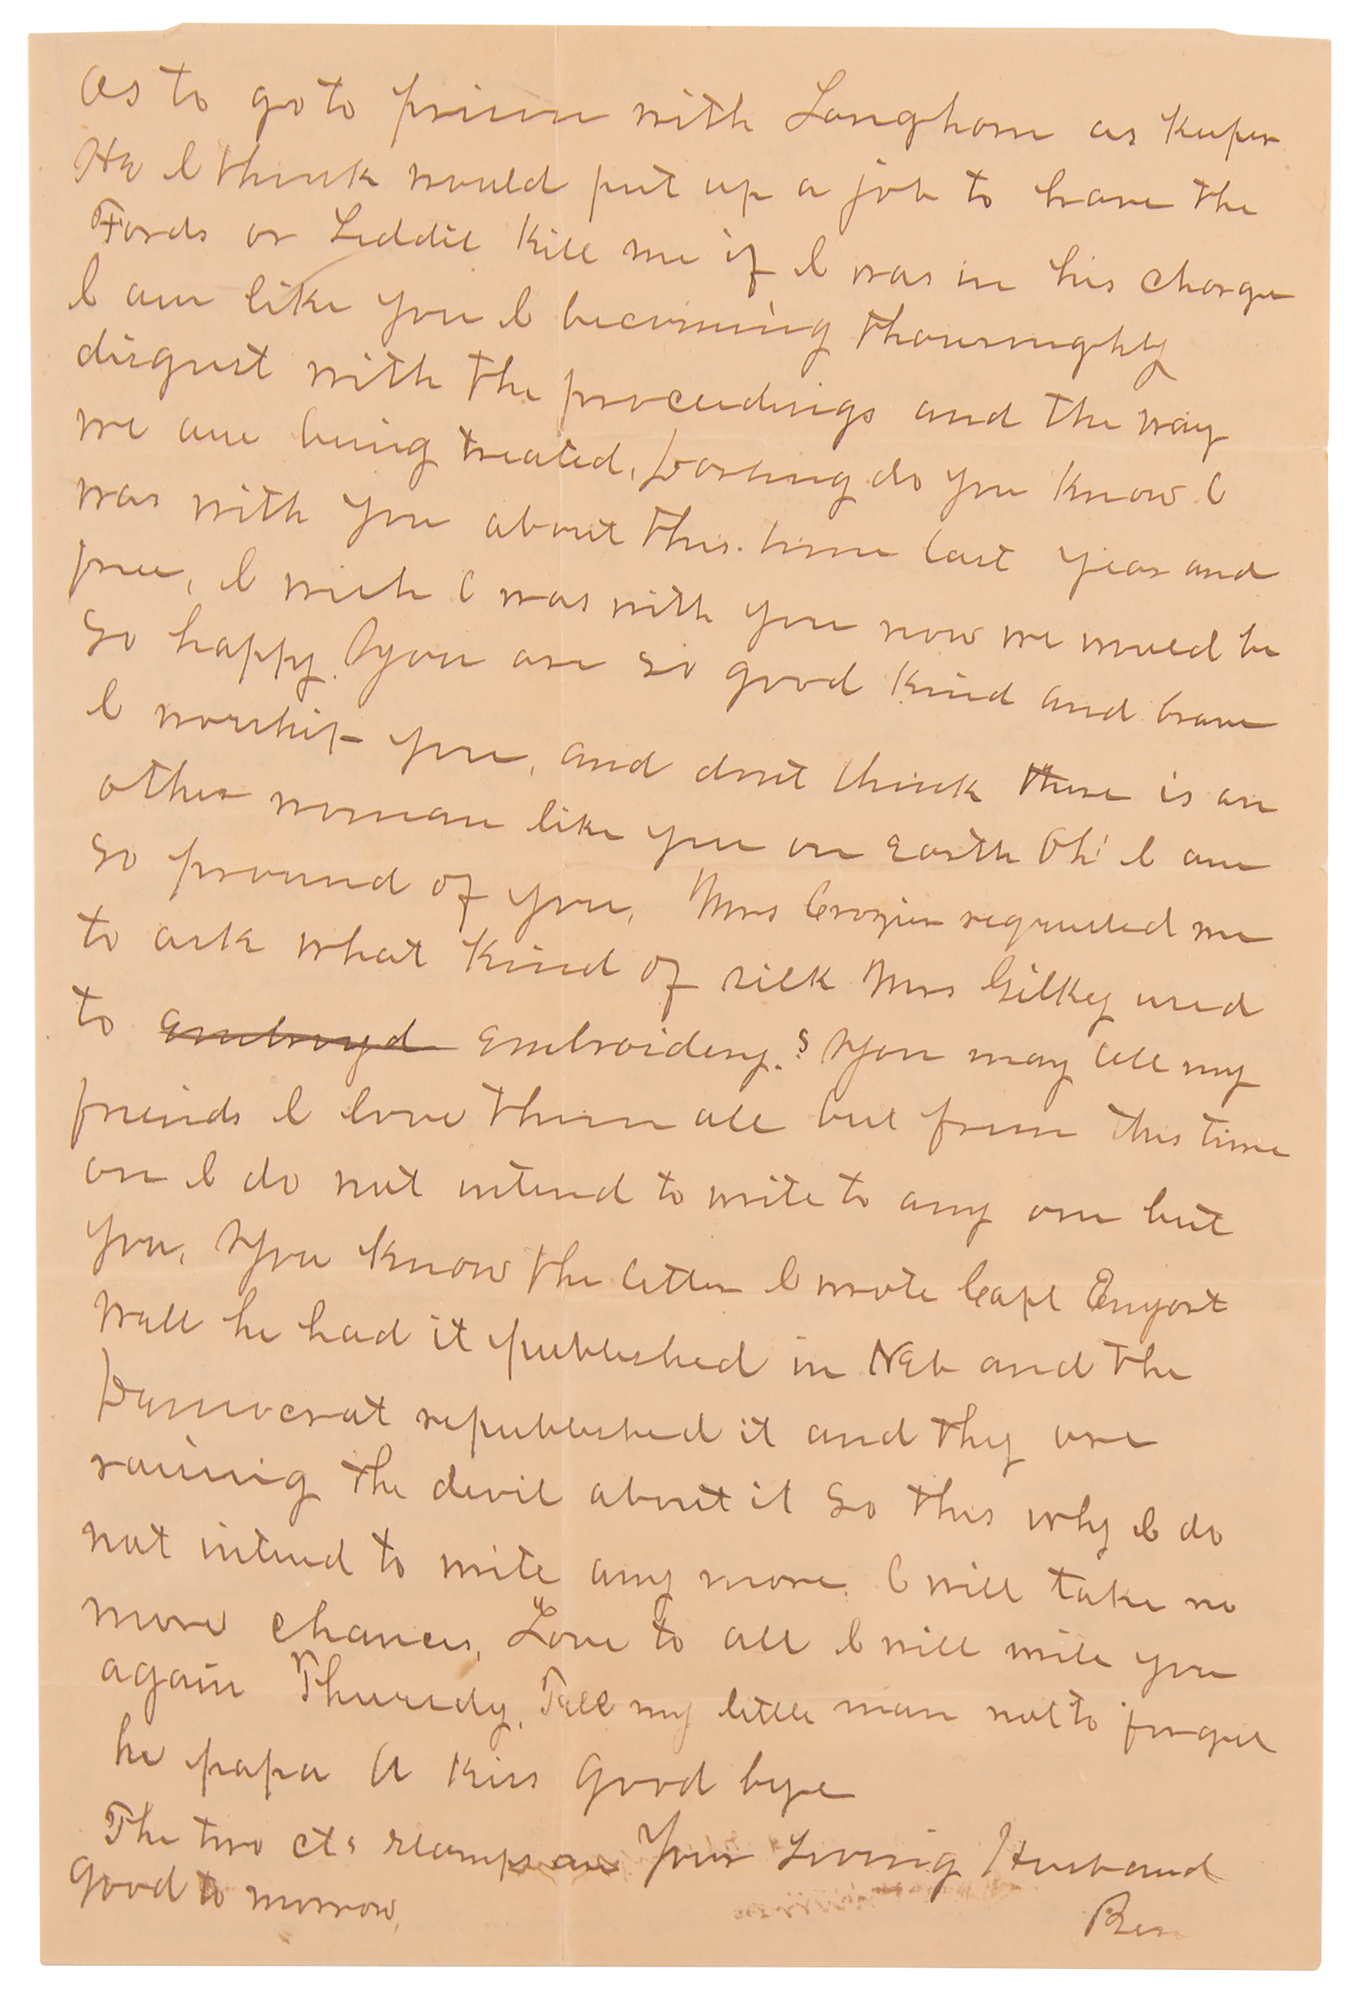 as to go to prison with Langhorn as Keeper
He I think would put up a job to have the
Fords or Liddil Kill me if I was in his charge
I am like you I becoming thouroughly
disgust with the proceedings and the way
we are being treated, Darling do you Know I
was with you about this time last year and
free, I wish I was with you now we would be
so happy. you are so good Kind and brave
I worship you, and dont think there is an
other woman like you on earth Oh! I am
so pround of you, Mrs Crozier requested me
to ask what Kind of silk Mrs Gilkey used
to embroyd embroidery.? You may tell my
friends I love them all but from this time
on I do not intend to write to any one but
you, You Know the letter I wrote Capt Enyort
Well he had it published in Neb and the
Damocrat republished it and they are
raising the devil about it So this why I do
not intend to write any more. I will take no
more chances, "Love to all I will write you
again Thursdy, Tell my little man not to forget
he papa A Kiss Good bye
The two cts stamps are Your Loving Husband
good to morrow, Ben